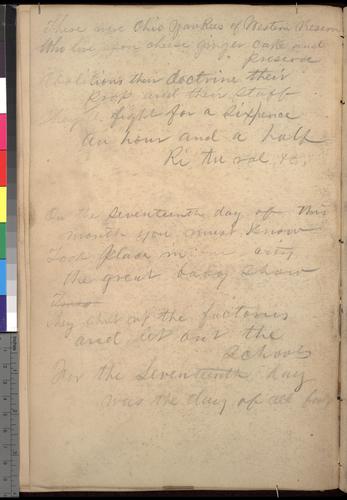 These are Ohio Yankees of Western Reserve
Who live upon cheese ginger cake and
preserve
Abolitions their doctrine their
prop and their staff
fight for a sixpence
an hour and a half
Ri tu ral &c,
On the seventeenth day of this
month you must know
Took place in city
the great baby show
They shut up the factories
and let out the
schools
For the seventeenth day
was the day of all